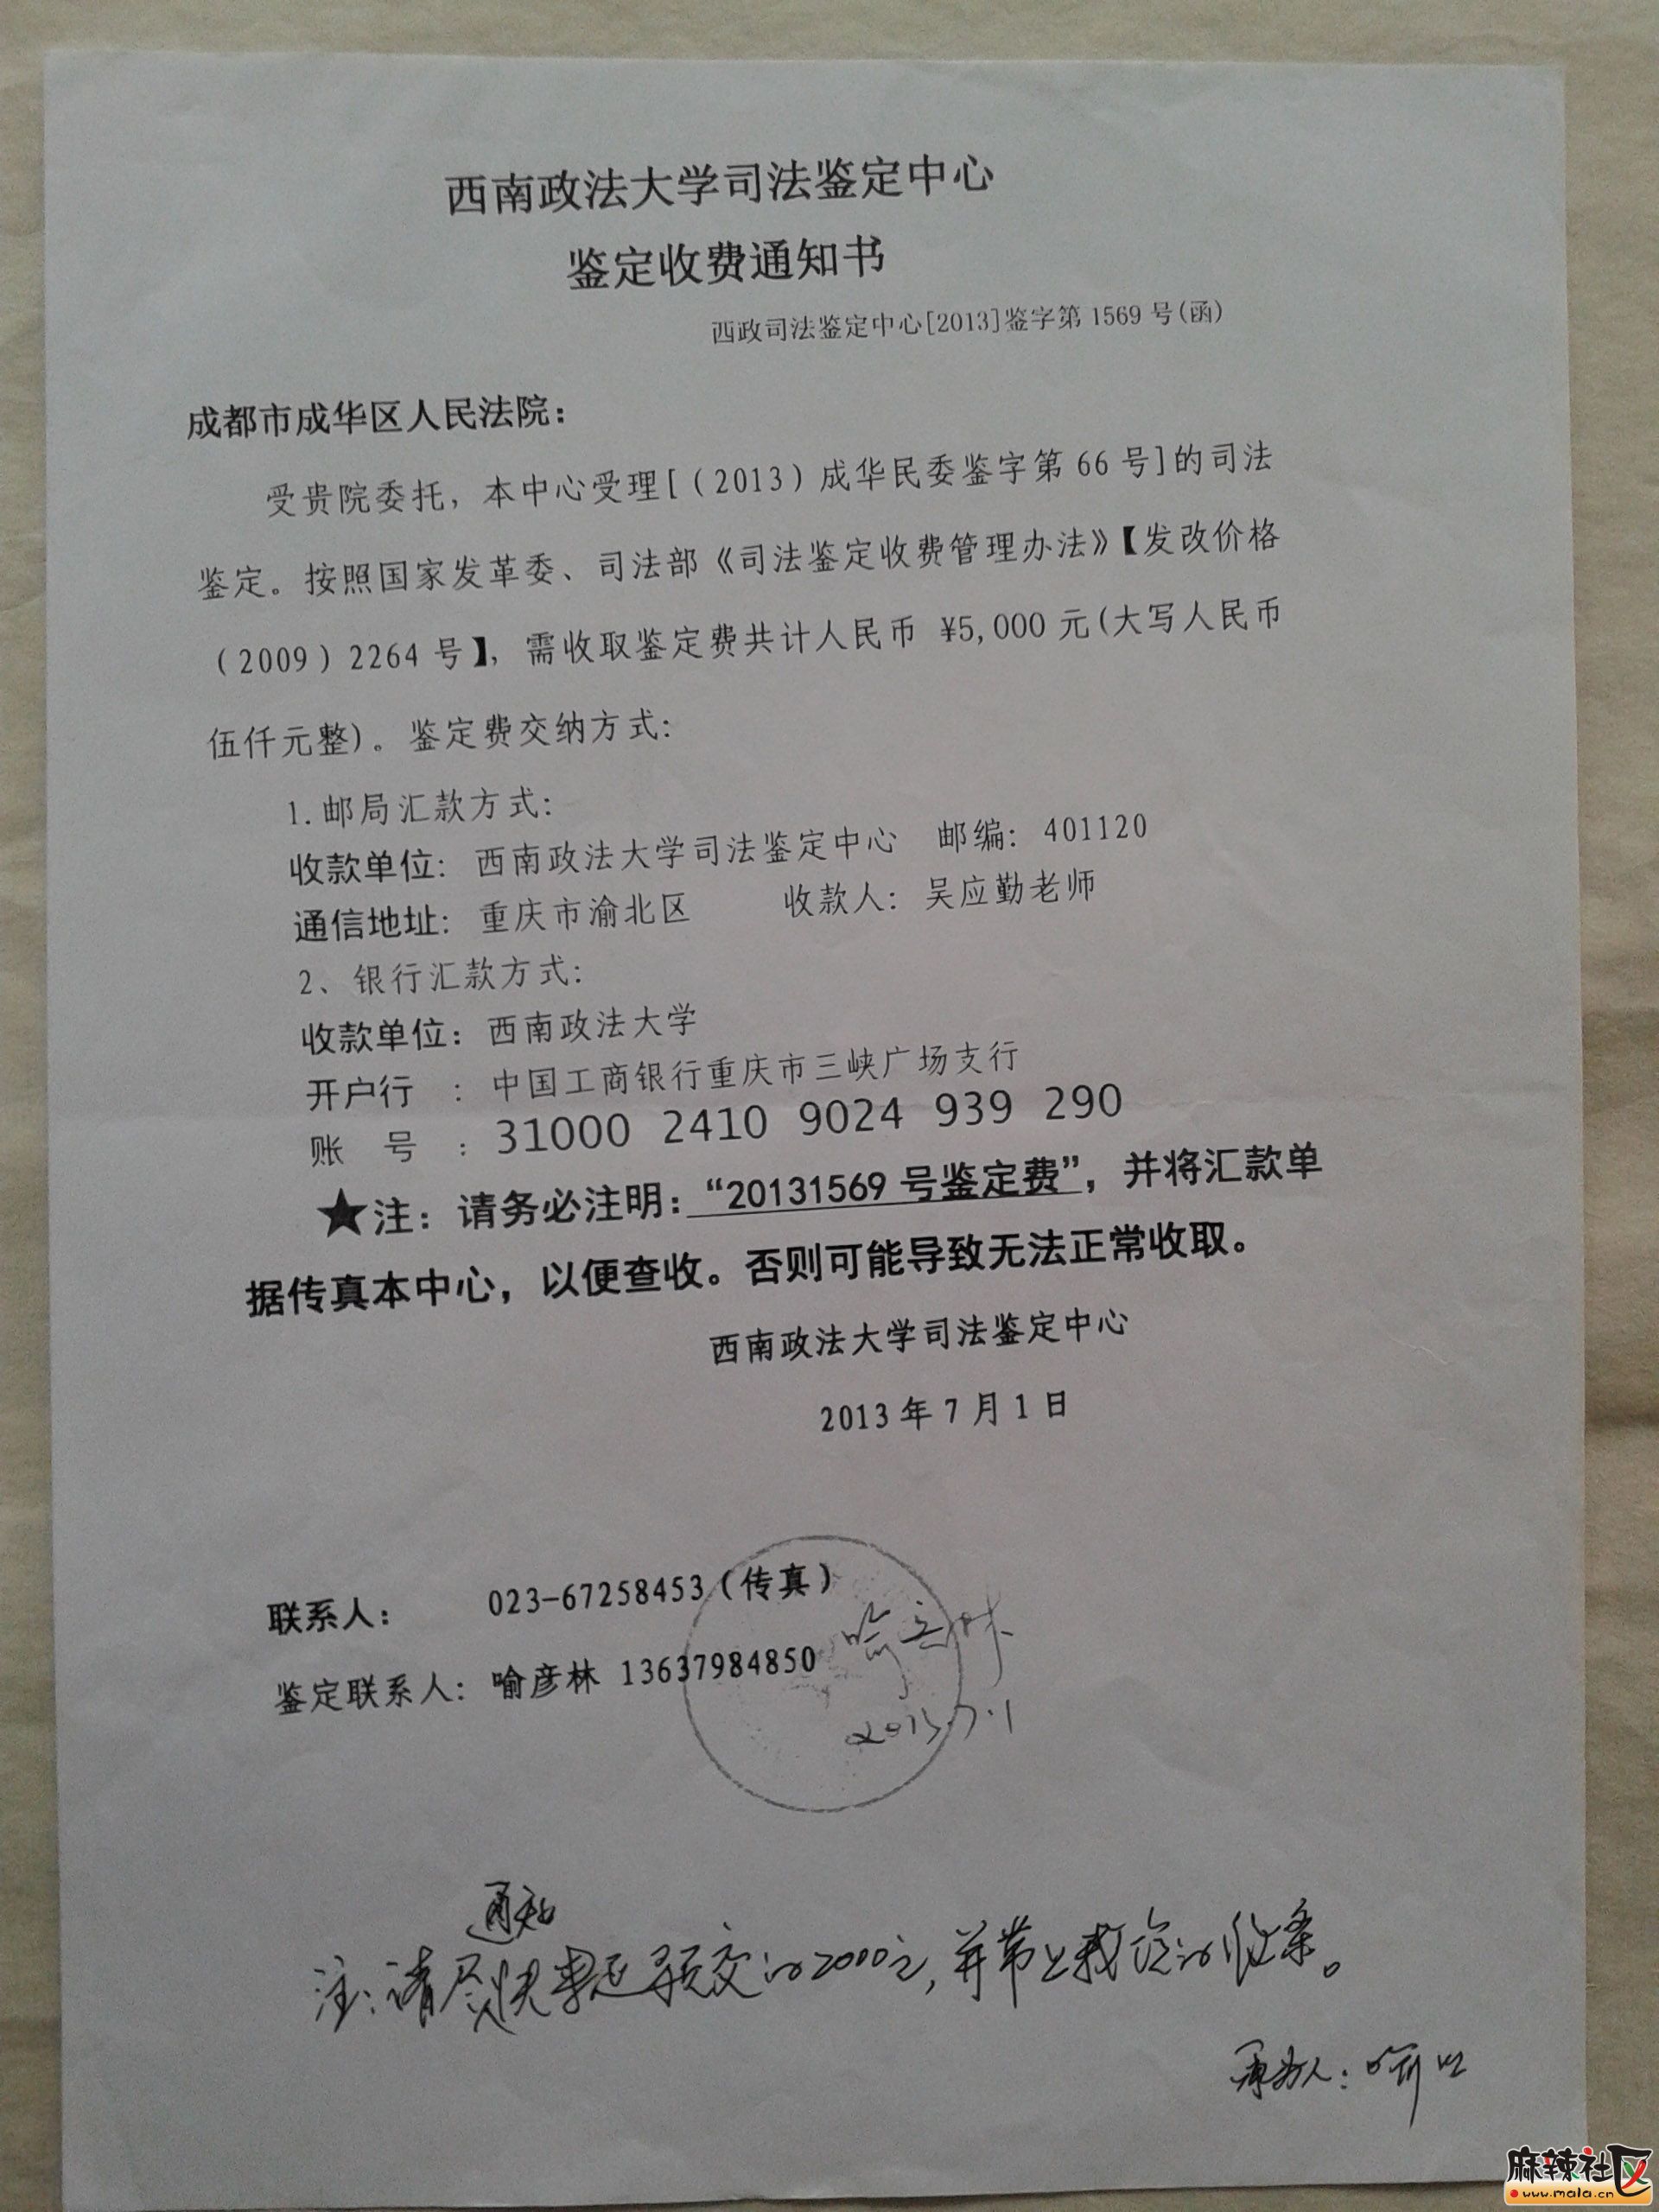 西南政法大学司法鉴定中心
鉴定收费通知书
西政司法鉴定中心[2013]鉴字第 1569 号(函)
成都市成华区人民法院：
受贵院委托，本中心受理[（2013）成华民委鉴字第 66 号]的司法
鉴定。按照国家发革委、司法部《司法鉴定收费管理办法》【发改价格
（2009）2264 号】，需收取鉴定费共计人民币 ¥5,000 元(大写人民币
伍仟元整)。鉴定费交纳方式：
1.邮局汇款方式：
收款单位：西南政法大学司法鉴定中心 邮编：401120
通信地址：重庆市渝北区 收款人：吴应勤老师
2、银行汇款方式：
收款单位：西南政法大学
开户行 ：中国工商银行重庆市三峡广场支行
账 号 ：31000 2410 9024 939 290
★注：请务必注明：“20131569 号鉴定费”，并将汇款单
据传真本中心，以便查收。否则可能导致无法正常收取。
西南政法大学司法鉴定中心
2013 年 7 月 1 日
联系人： 023-67258453（传真）
鉴定联系人：喻彦林 13637984850
喻彦林
2013.7.1
通知
注：请尽快 预交的2000元，并带上我院的收条。
承办人：
麻辣社区
www.mala.cn